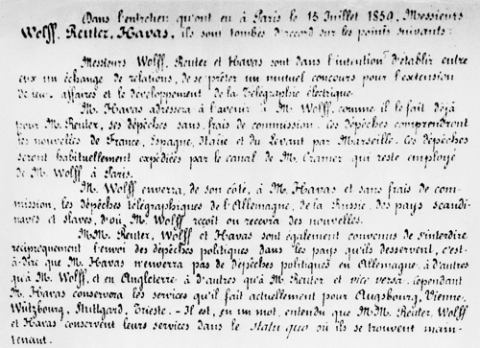 Dans l'entretien qu'ont eu à Paris le 15 Juillet 1859, Messieurs
Wolff, Reuter, Havas, ils sont tombés d'accord sur les points suivants:
Messieurs Wolff, Reuter et Havas sont dans l'intention d'établir entre
eux un échange de relations, de se prêter un mutuel concours pour l'extension
de leurs affaires et le développement de la télégraphie électrique.
M. Havas adressera à l'avenir à Mr. Wolff, comme il le fait déjà
pour M. Reuter, ses dépêches sans frais de commission. Ces dépêches comprendront
les nouvelles de France, Espagne, Italie et du Levant par Marseille. Ces dépêches
seront habituellement expédiées par le canal de M. Cramer qui reste employé
de M. Wolff à Paris.
M. Wolff enverra, de son côté, à M. Havas et sans frais de com-
mission, les dépêches télégraphiques de l'Allemagne, de la Russie, des pays scandi-
naves et slaves, d'où M. Wolff reçoit ou recevra des nouvelles.
M.M. Reuter, Wolff et Havas sont également convenus de s'interdire
réciproquement l'envoi des dépêches politiques dans les pays qu'ils desservent, c'est-
à-dire que M. Havas n'enverra pas de dépêches politiques en Allemagne à d'autres
qu'à M. Wolff, et en Angleterre à d'autres qu'à M. Reuter et vice versa. Cependant
M. Havas conservera les services qu'il fait actuellement pour Augsbourg, Vienne,
Würzbourg, Stuttgard, Trieste. - Il est, en un mot, entendu que M.M. Reuter, Wolff
et Havas conservent leurs services dans le statu quo où ils se trouvent main-
tenant.